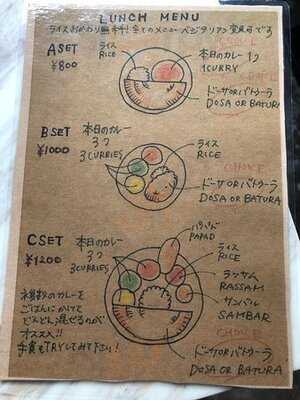 LUNCH MENU
ライスおかわり無料!全てのメニューベジタリアン変更可です
A SET
¥800
ライス
RICE
CHOICE
本日のカレー 1つ
1CURRY
CHOICE
ドーサ OR バトゥーラ
DOSA OR BATURA
B SET
¥1000
本日のカレー
3つ
3CURRIES
ライス
RICE
CHOICE
ドーサ OR バトゥーラ
DOSA OR BATURA
C SET
¥1200
本日のカレー
3つ
3CURRIES
パパド
PAPAD
ライス
RICE
ラッサム
RASSAM
サンバル
SAMBAR
CHOICE
ドーサ OR バトゥーラ
DOSA OR BATURA
複数のカレーを
ごはんにかけて
どんどん混ぜるのが
オススメ!!
手食もTRYしてみて下さい!